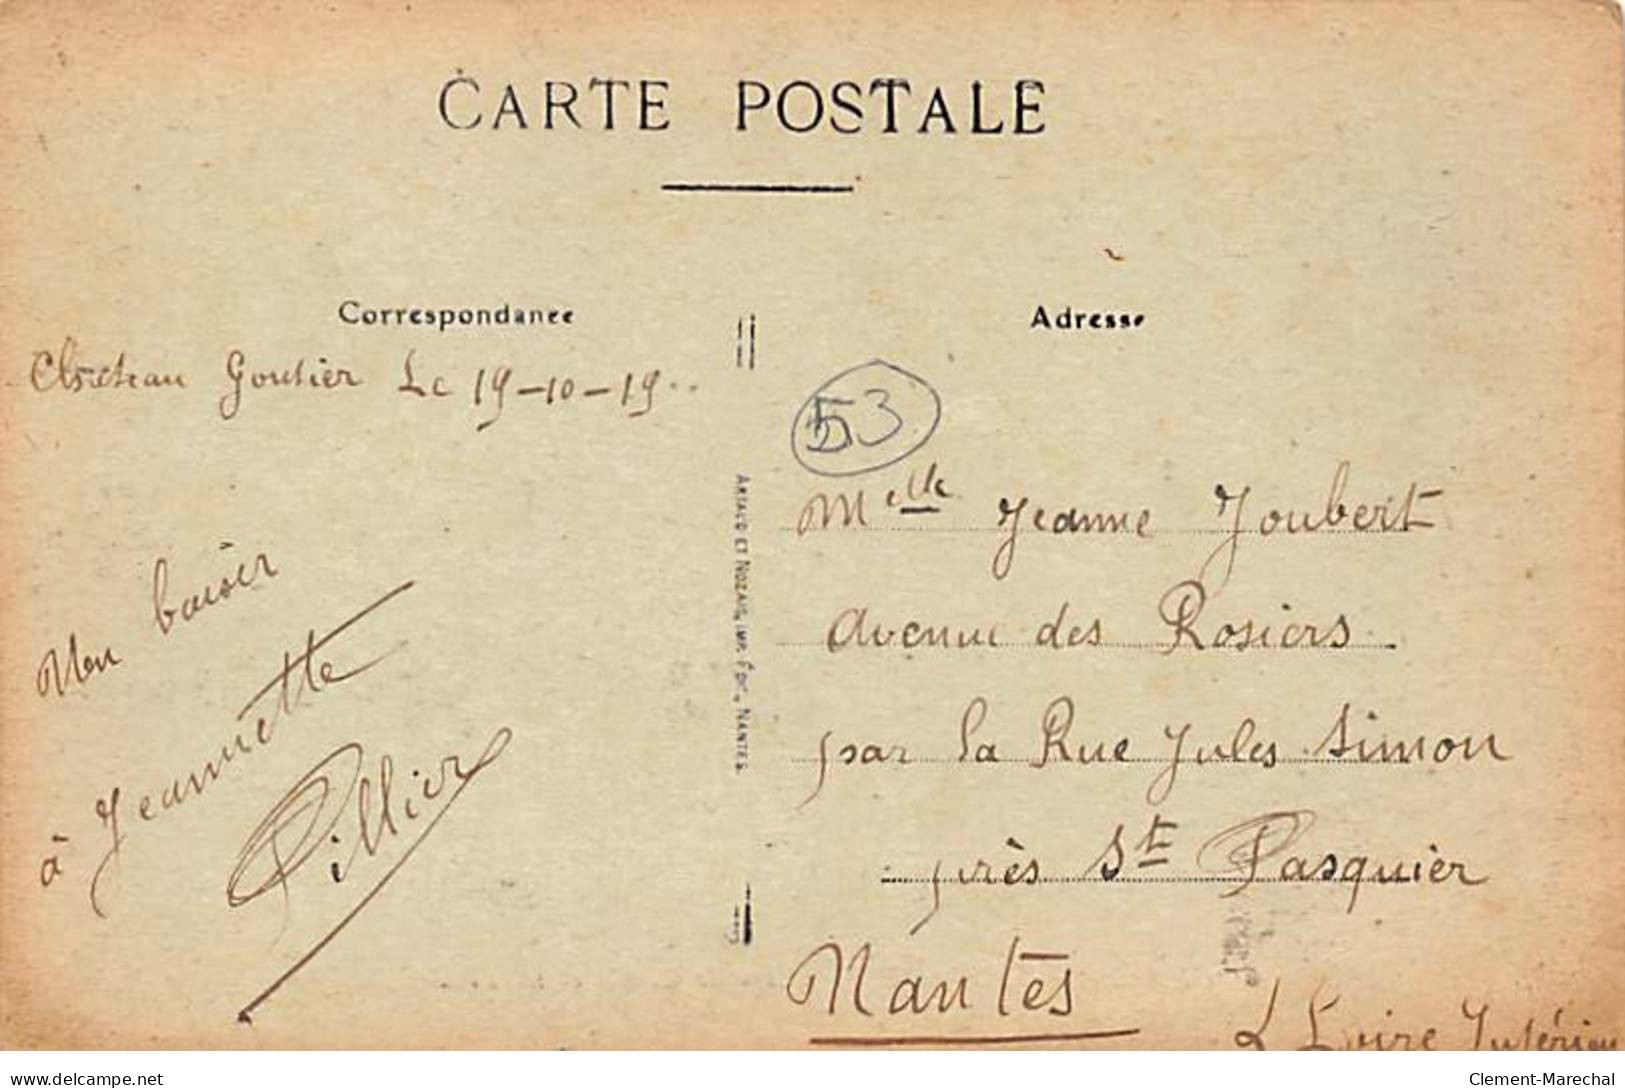 CARTE POSTALE
Correspondance
Chateau Gontier Le 19-10-19..
Mon baiser
à Jeannette
Pillier
ARTAUD ET NOZAIS, IMP. ÉDIT., NANTES.
Adresse
53
Melle Jeanne Joubert
Avenue des Rosiers
par la Rue Jules Simon
près St Pasquier
Nantes
Loire Inférieu
delcampe.net
Clement-Marechal